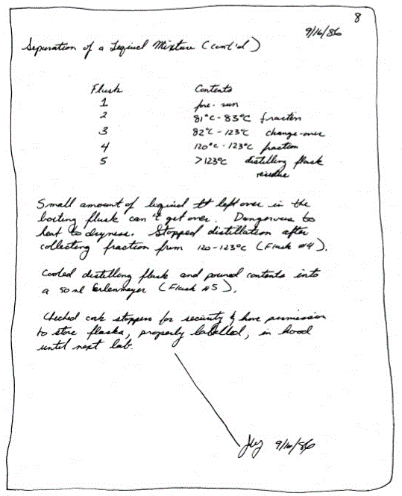 8
9/16/86
Separation of a Liquid Mixture (cont'd)
Flask Contents
1 pre-run
2 81°C-83°C fraction
3 82°C-123°C change-over
4 120°C-123°C fraction
5 >123°C distilling flask
residue
Small amount of liquid left over in the
boiling flask can't get over. Dangerous to
heat to dryness. Stopped distillation after
collecting fraction from 120-123°C (Flask #4).
Cooled distilling flask and poured contents into
a 50 ml Erlenmeyer (Flask #5).
Checked cork stoppers for security & have permission
to store flasks, properly labelled, in hood
until next lab.
9/16/86